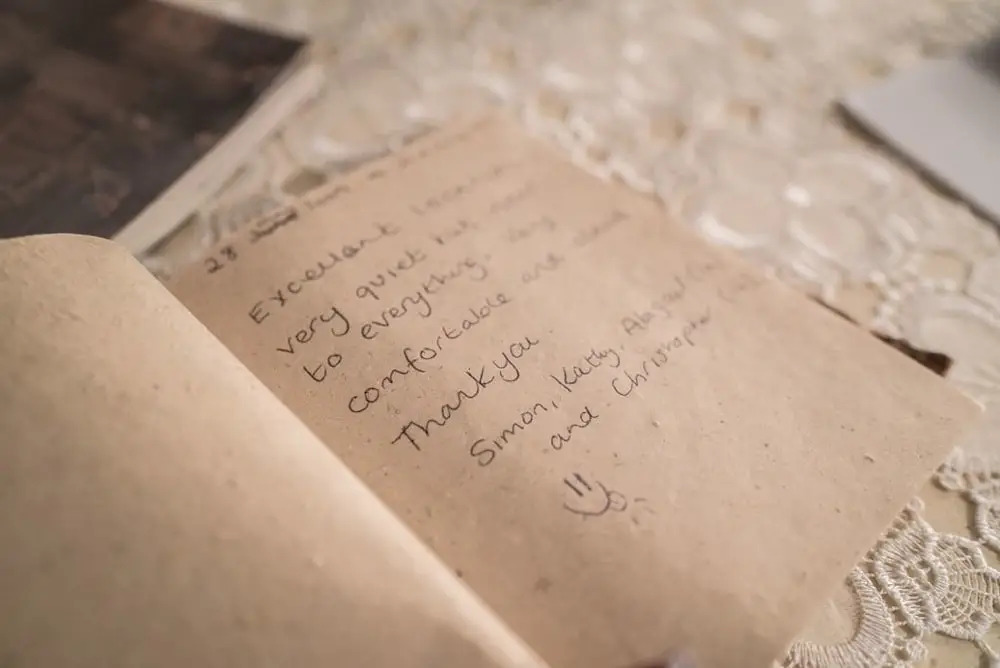 28
Excellent
very quiet but near
to everything. Very
comfortable and clean
Thank you
Simon, Kathy, Abigail
and Christopher